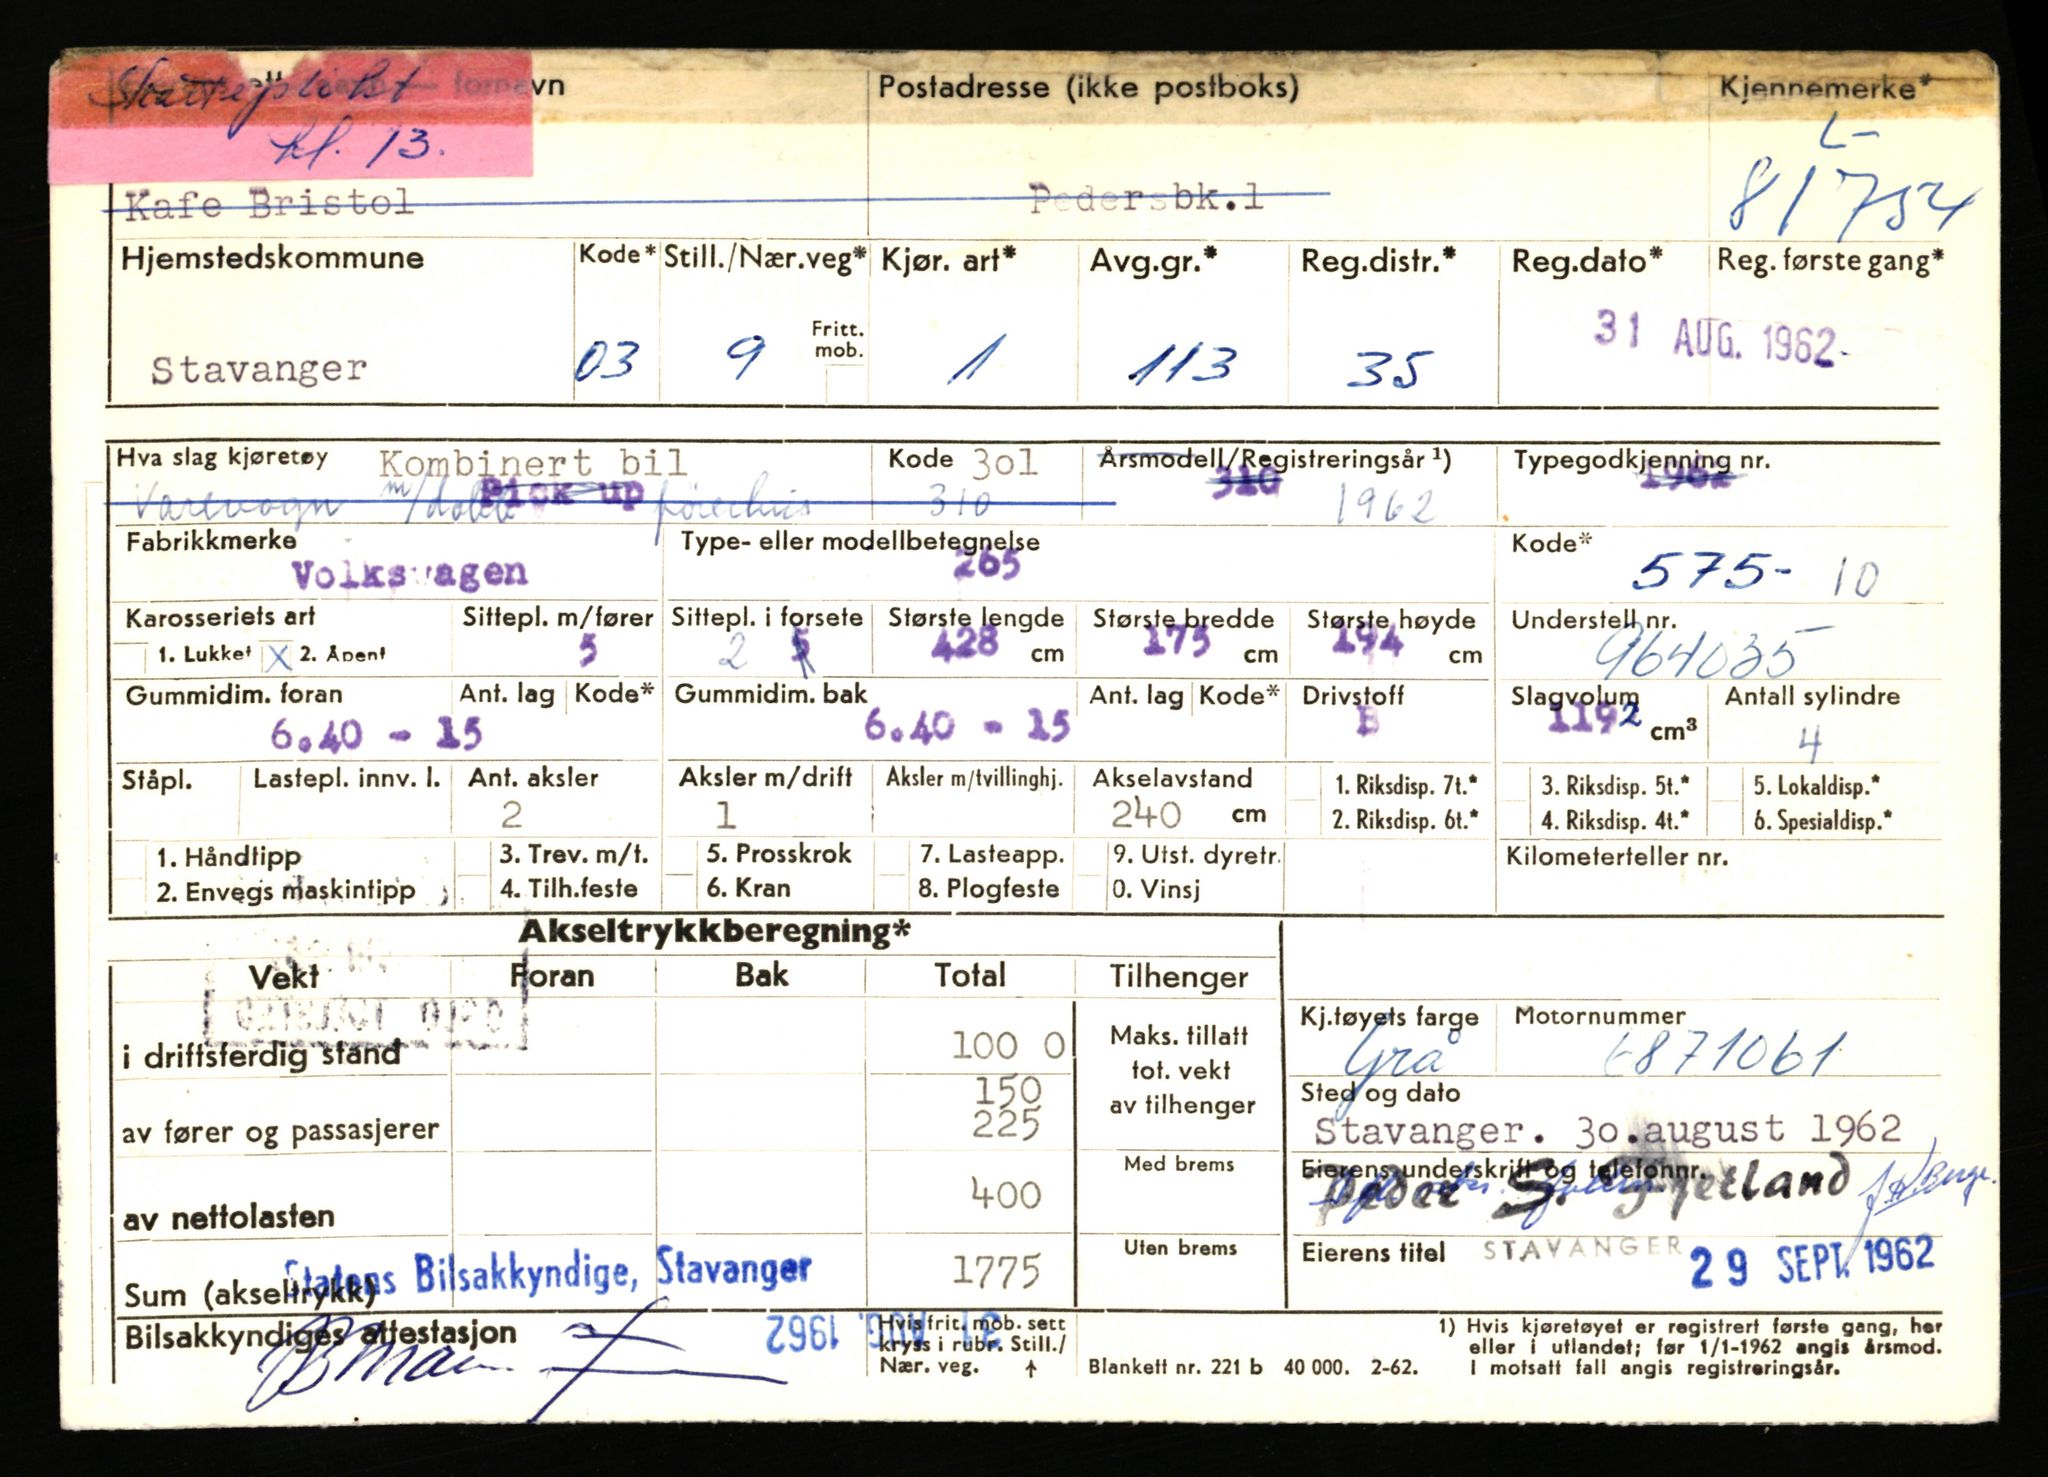 Skattepliktet fornavn Postadresse (ikke postboks) Kjennemerke*
kl. 13. L-
Kafe Bristol Pedersbk.1 81754
Hjemstedskommune Kode* Still./Nær.veg* Kjør. art* Avg.gr.* Reg.distr.* Reg.dato* Reg. første gang*
Fritt. mob.
Stavanger 03 9 1 113 35 31 AUG. 1962
Hva slag kjøretøy Kombinert bil Kode 301 Årsmodell/Registreringsår ¹) Typegodkjenning nr.
Varevogn m/dobb Pick-up førerhus 310 310 1962 1962
Fabrikkmerke Type- eller modellbetegnelse Kode*
Volkswagen 265 575- 10
Karosseriets art Sittepl. m/fører Sittepl. i forsete Største lengde Største bredde Største høyde Understell nr.
1. Lukket X 2. Åpent 5 2 5 428 cm 175 cm 194 cm 964035
Gummidim. foran Ant. lag Kode* Gummidim. bak Ant. lag Kode* Drivstoff Slagvolum Antall sylindre
6.40 - 15 6.40 - 15 B 1192 cm³ 4
Ståpl. Lastepl. innv. l. Ant. aksler Aksler m/drift Aksler m/tvillinghj. Akselavstand 1. Riksdisp. 7t.* 3. Riksdisp. 5t.* 5. Lokaldisp.*
2 1 240 cm 2. Riksdisp. 6t.* 4. Riksdisp. 4t.* 6. Spesialdisp.*
1. Håndtipp 3. Trev. m/t. 5. Prosskrok 7. Lasteapp. 9. Utst. dyretr. Kilometerteller nr.
2. Envegs maskintipp 4. Tilh.feste 6. Kran 8. Plogfeste 0. Vinsj
Akseltrykkberegning*
Vekt Foran Bak Total Tilhenger
Kj.tøyets farge Motornummer
i driftsferdig stand 100 0 Maks. tillatt tot. vekt av tilhenger Grå 6871061
150 Sted og dato
av fører og passasjerer 225 Stavanger. 30.august 1962
Med brems Eierens underskrift og telefonnr.
av nettolasten 400 Peder S. Gjetland
Uten brems Eierens titel STAVANGER 29 SEPT. 1962
Sum (akseltrykk) Statens Bilsakkyndige, Stavanger 1775
Bilsakkyndiges attestasjon 31 AUG. 1962
Hvis frit. mob. sett kryss i rubr. Still./ Nær. veg. ↑
Blankett nr. 221 b 40 000. 2-62.
1) Hvis kjøretøyet er registrert første gang, her
eller i utlandet; før 1/1-1962 angis årsmod.
I motsatt fall angis registreringsår.